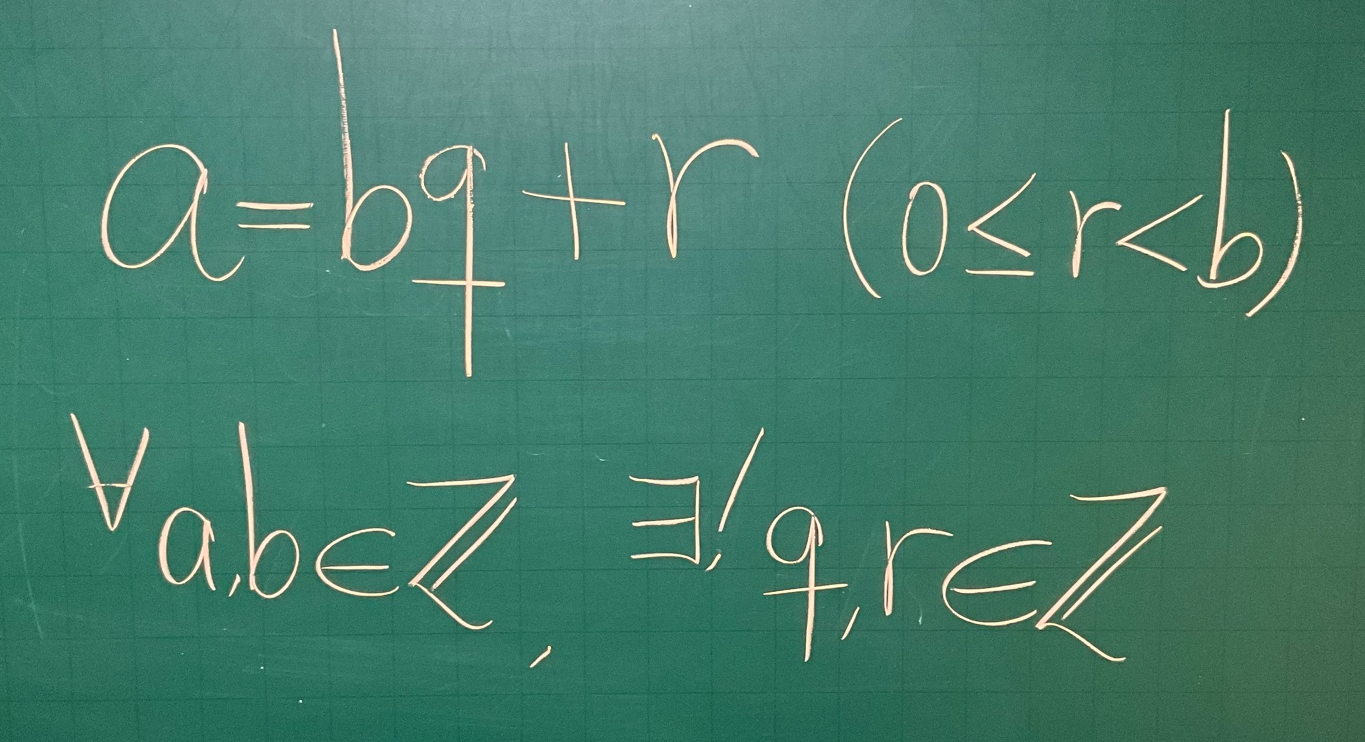 a=bq+r (0≤r<b)
∀a,b∈ℤ, ∃!q,r∈ℤ